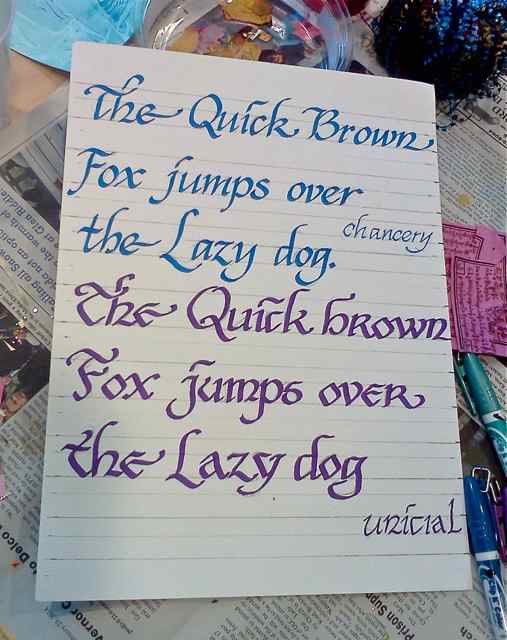 The Quick Brown
Fox jumps over
the Lazy dog.
chancery
The Quick brown
Fox jumps over
the Lazy dog
unicial